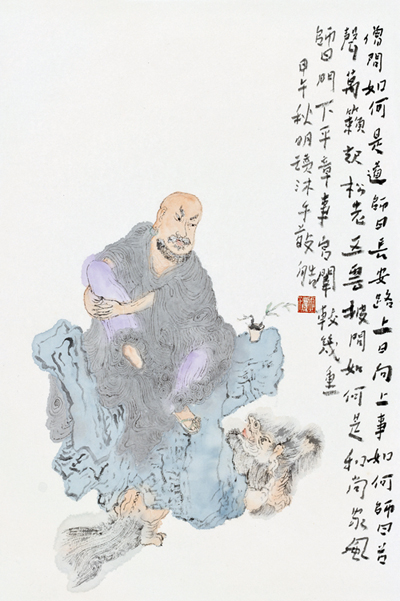 僧問如何是道師曰長安路上曰向上事如何師曰谷
聲萬籟起松老五雲披問如何是和尚家風
師曰門下平章事宮闈較幾重
甲午秋明沐手敬